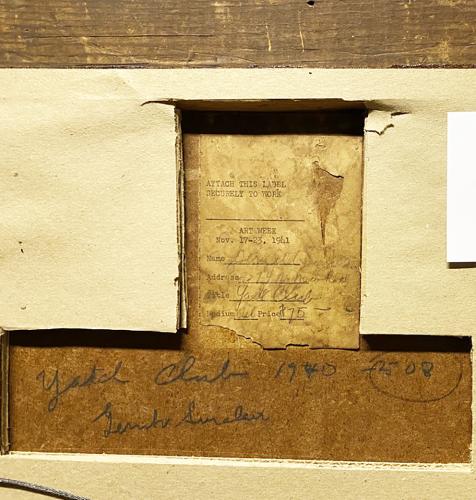 ATTACH THIS LABEL
SECURELY TO WORK
ART WEEK
Nov. 17-23, 1941
Name
Address
Title Yacht Club
Medium Oil Price $75
Yacht Club 1940
Gerrit Sinclair